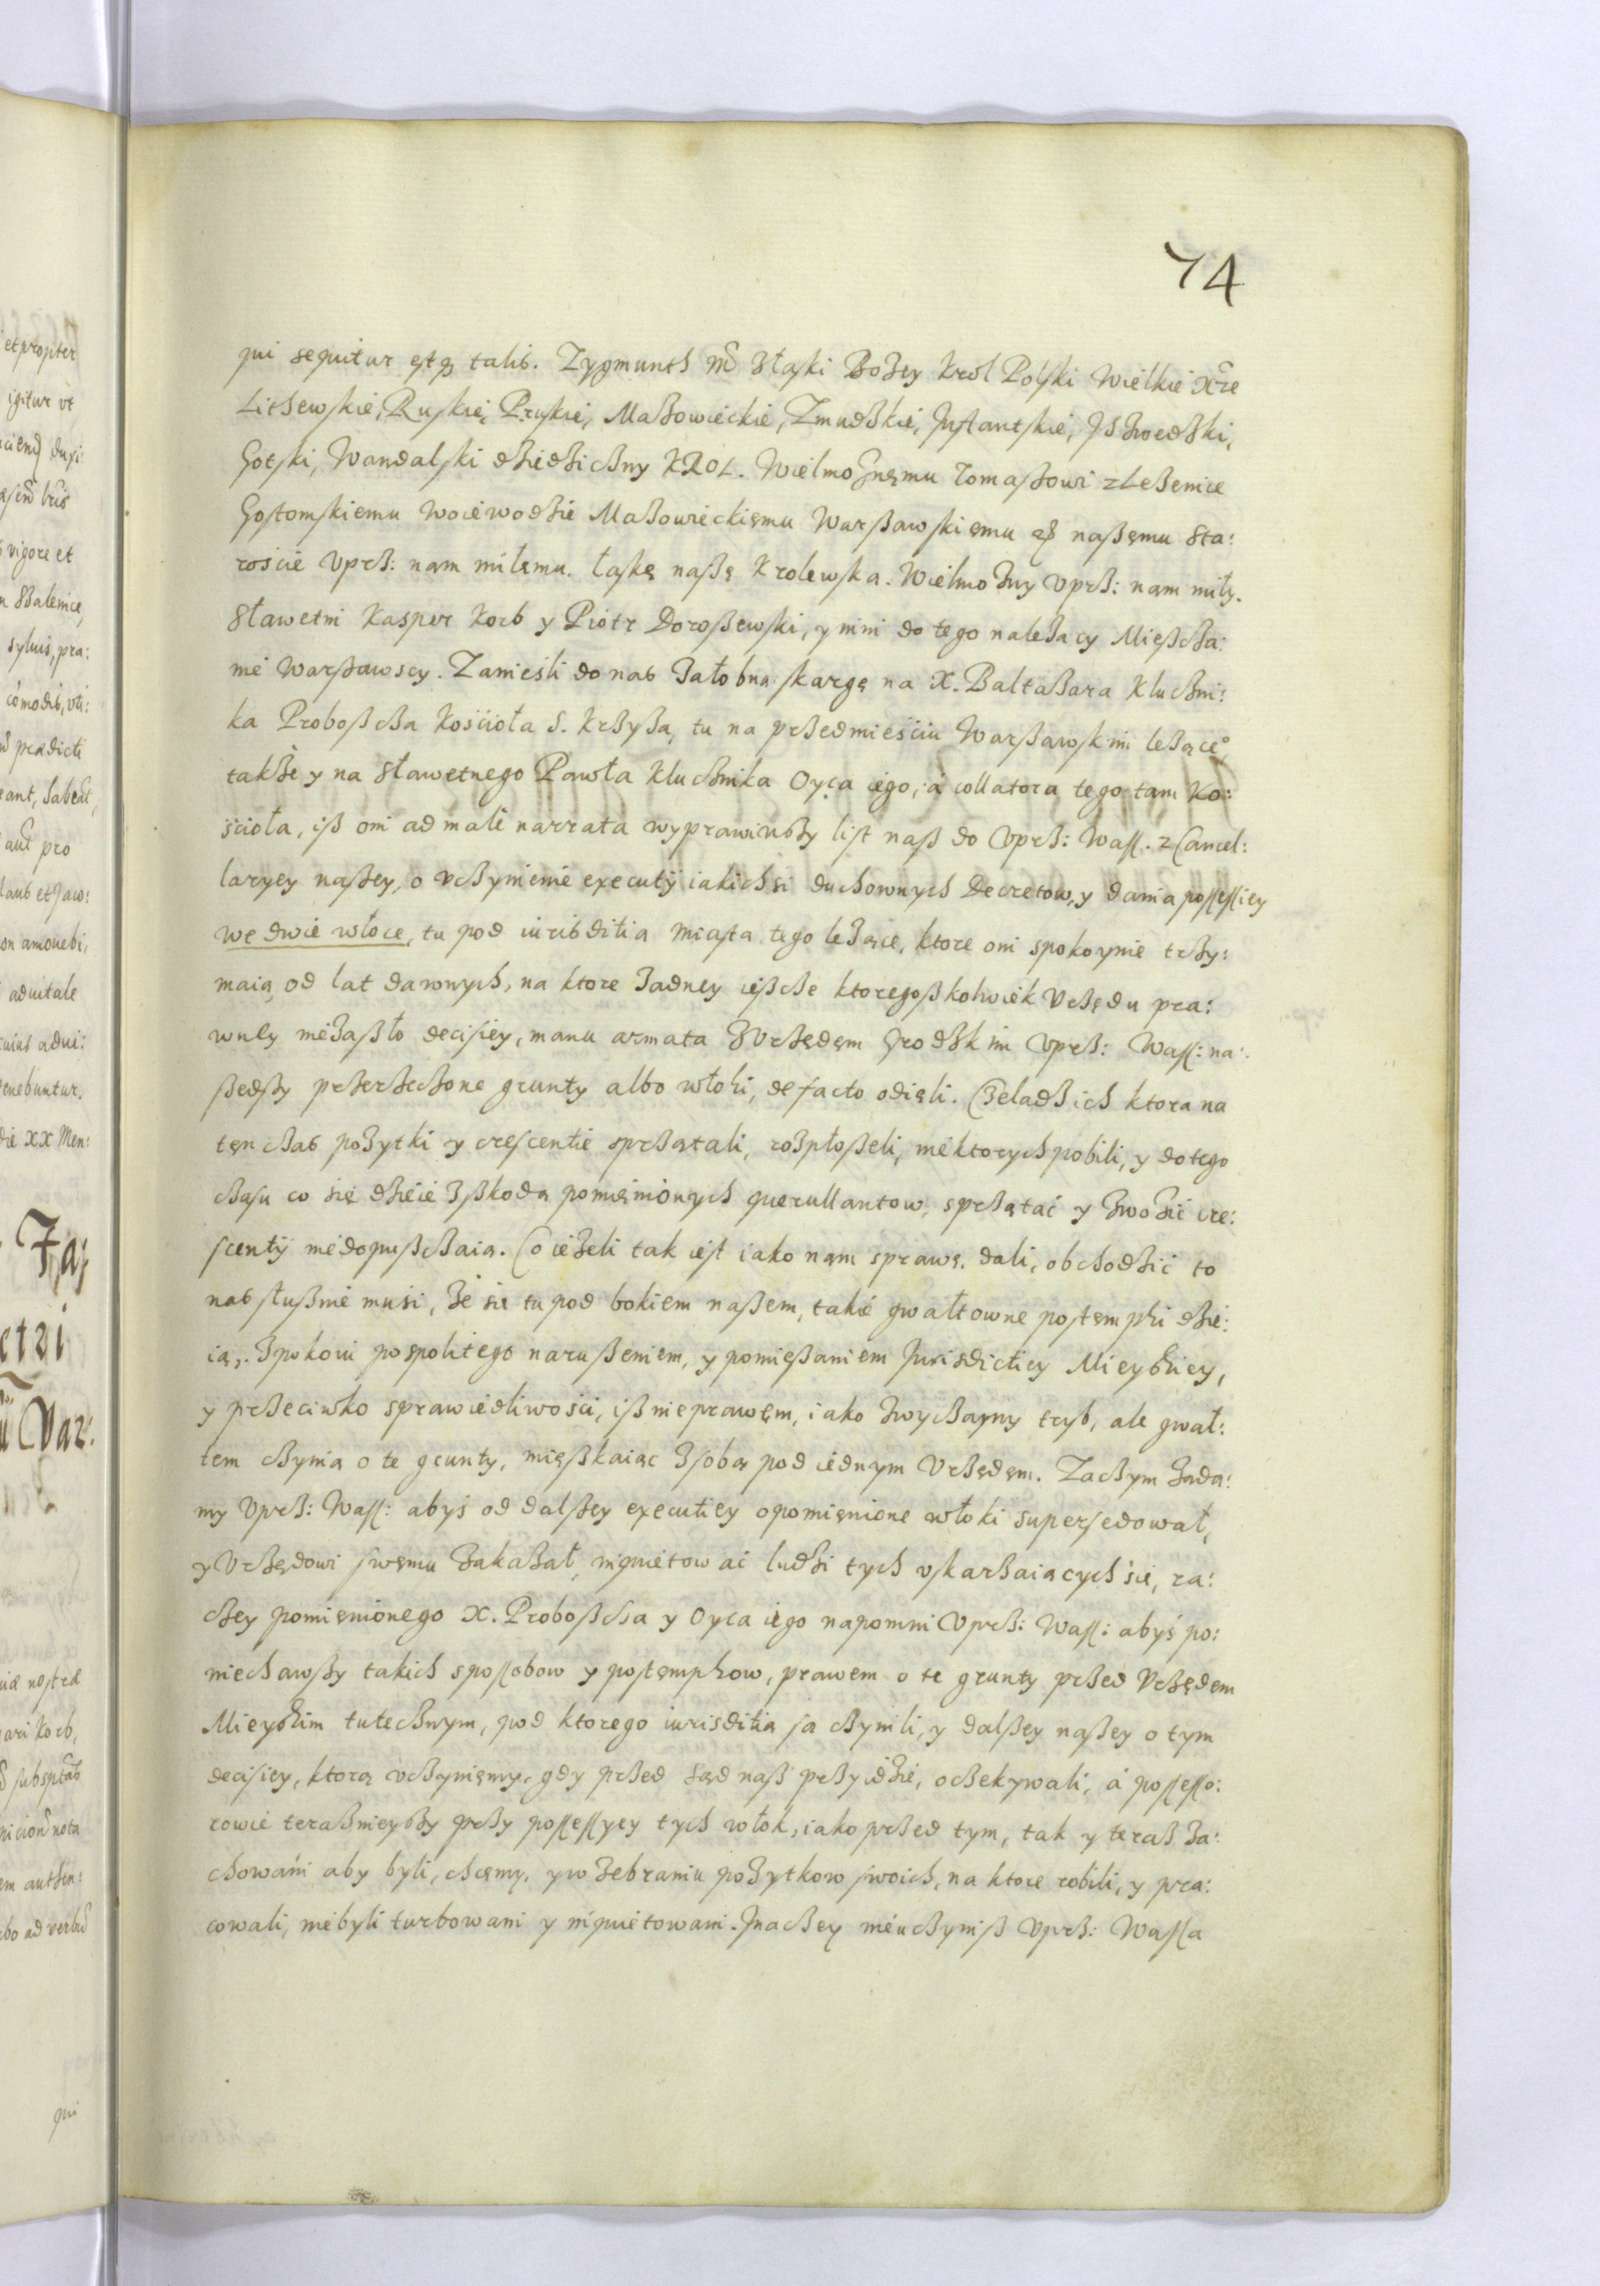 74
qui sequitur estq; talis. Zygmunth III z łaski Bozey Krol Polski Wielkie Xże
Lithewskie, Ruskie, Pruskie, Mazowieckie, Zmudzkie, Inflantskie, y Szwedzki,
Gotski, Wandalski dziedziczny KROL. Wielmożnęmu Tomaszowi z Lezenice
Gostomskiemu Woiewodzie Mazowieckięmu Warszawskiemu etc naszęmu Sta:
roscie Uprz: nam miłemu. łaskę naszę Krolewska. Wielmożny Uprz: nam miły.
Sławetni Kasper Korb y Piotr Doroszewski, y inni do tego nalezacy Mieszcza:
nie Warszawscy. Zaniesli do nas załobna skargę na X. Baltazara Kluczni:
ka Proboszcza Koscioła S. Krzyza, tu na przedmiesciu Warszawskim lezące°
także y na Sławetnego Pawła Klucznika Oyca iego, á collatora tego tam Ko:
scioła, isz oni ad male narrata wyprawiwszy list nasz do Uprz: Wass. z Cancel:
laryey naszey, o uczynienie executÿ iakichsi duchownych Decretow, y dania possessiey
we dwie włoce, tu pod iurisditia miasta tego leżące, ktore oni spokoynie trzy:
maią od lat dawnych, na ktore żadney ieszcze ktoregoszkolwiek Urzędu pra:
wney niezaszło decisiey, manu armata z Urzędęm Grodzkim Uprz: Wass: na:
szedszy przerzeczone grunty albo włoki, de facto odięli. Czeladz ich ktora na
tęn czas pożytki y crescentie sprzątali, rozpłoszeli, niektorych pobili, y do tego
czasu co się dzieie z szkodą pomięnionych querullantow, sprzątać y zwozić cre:
scentÿ niedopuszczaia. Co ieżeli tak iest iako nam sprawę dali, obchodzić to
nas słusznie musi, że sie tu pod bokiem naszem, takie gwałtowne postęmpki dzie:
ią, z pokoiu pospolitego naruszeniem, y pomięszaniem Jurisdictiey Mieyskiey,
y przeciwko sprawiedliwosci, isz nieprawęm, iako zwyczayny tryb, ale gwał:
tem czynią o te grunty, mięszkaiąc z sobą pod iednym Urzędęm. Zaczym żąda:
my Uprz: Wass: abyś od dalszey executiey o pomięnione włoki supersedował,
y Urzędowi swęmu zakazał, inquietować ludzi tych uskarzaiących sie, ra:
czey pomięnionego X. Proboszcza y Oyca iego napomni Uprz: Wass: abyś po:
niechawszy takich spossobow y postęmpkow, prawem o te grunty przed Urzędem
Mieyskim tutecznym, pod ktorego iurisditią ia czynili, y dalszey naszey o tym
decisiey, ktorą uczynięmy, gdy przed sąd nasz przyidzie, oczekywali, á possesso:
rowie teraznieyszy przy possessyey tych włok, iako przed tym, tak y teraz za:
chowani aby byli, chcęmy, y w zebraniu pożytkow swoich, na ktore robili, y pra:
cowali, niebyli turbowani y inquietowani. Inaczey nieuczynisz Uprz: Wassa